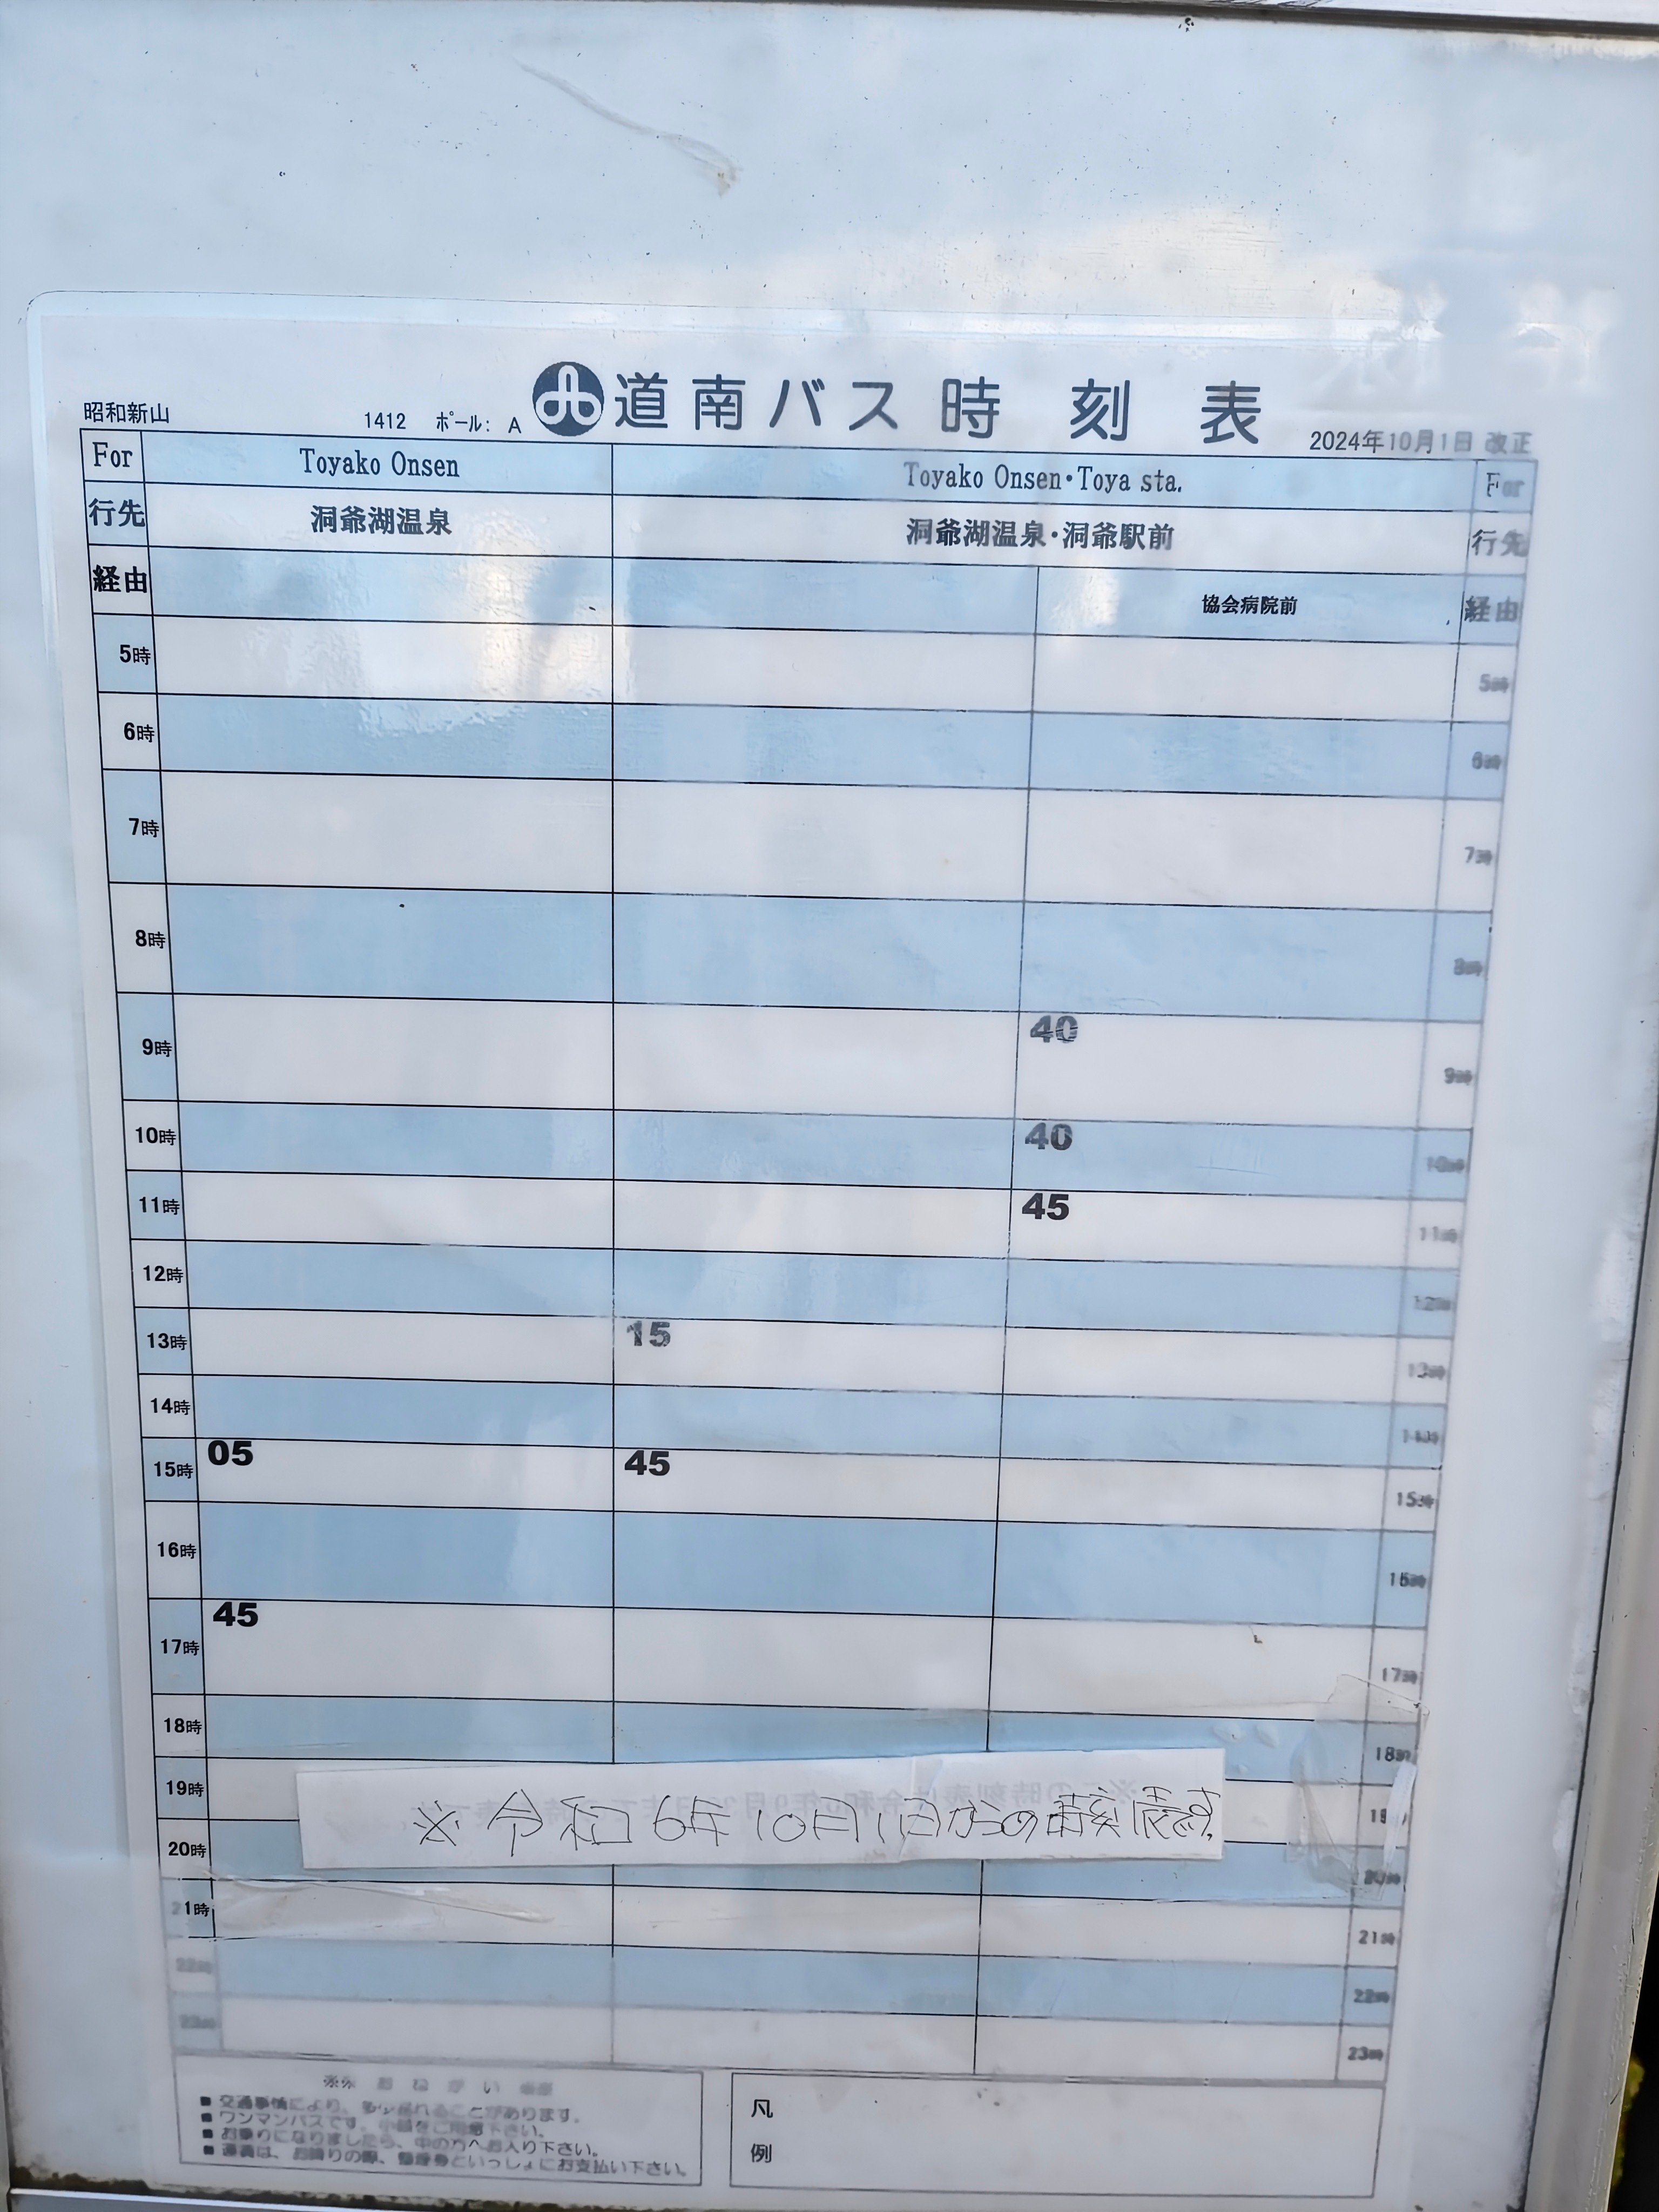 道南バス 時刻表
昭和新山 1412 ポール: A 2024年10月1日 改正
For Toyako Onsen Toyako Onsen・Toya sta. For
行先 洞爺湖温泉 洞爺湖温泉・洞爺駅前 行先
経由 協会病院前 経由
5時 5時
6時 6時
7時 7時
8時 8時
9時 40 9時
10時 40 10時
11時 45 11時
12時 12時
13時 15 13時
14時 14時
15時 05 45 15時
16時 16時
17時 45 17時
18時 18時
19時 19
※令和6年10月1日からの時刻表です
20時 20時
21時 21時
22時 22時
23時 23時
※※ おねがい
■ 交通事情により、多少遅れることがあります。
■ ワンマンバスです。小銭をご用意下さい。
■ お乗りになりましたら、中の方へお入り下さい。
■ 運賃は、お降りの際、整理券といっしょにお支払い下さい。
凡
例